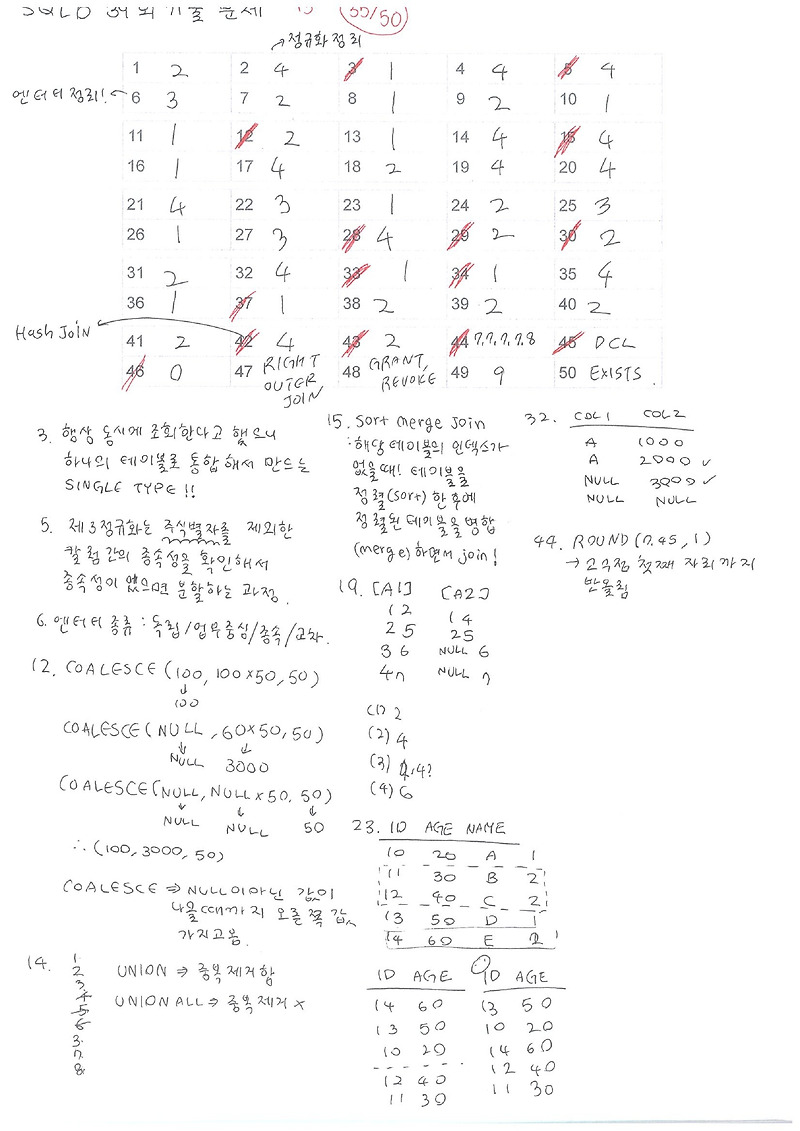 SQLD 34회 기출 문제
35/50
→정규화정리
1 2 2 4 3 1 4 4 5 4
엔터티정리!
6 3 7 2 8 1 9 2 10 1
11 1 12 2 13 1 14 4 15 4
16 1 17 4 18 2 19 4 20 4
21 4 22 3 23 1 24 2 25 3
26 1 27 3 28 4 29 2 30 2
31 2 32 4 33 1 34 1 35 4
36 1 37 1 38 2 39 2 40 2
Hash Join
41 2 42 4 43 2 44 7.7.7.7.8 45 DCL
46 0 47 RIGHT OUTER JOIN 48 GRANT, REVOKE 49 9 50 EXISTS
3. 항상 동시에 조회한다고 했으니
하나의 테이블로 통합해서 만드는
SINGLE TYPE !!
5. 제3정규화는 주식별자를 제외한
칼럼간의 종속성을 확인해서
종속성이 있으면 분할하는 과정.
6. 엔터티 종류 : 독립/업무중심/종속/교차
12. COALESCE (100, 100×50, 50)
↓
100
COALESCE (NULL, 60×50, 50)
↓ ↓
NULL 3000
COALESCE (NULL, NULL×50, 50)
↓ ↓ ↓
NULL NULL 50
∴ (100, 3000, 50)
COALESCE ⇒ NULL이아닌 값이
나올때까지 오른쪽 값
가지고옴.
14. 1
2 UNION ⇒ 중복제거함
3
4 UNION ALL ⇒ 중복제거 ×
5
6
3.
7.
8
15. Sort merge Join
: 해당 테이블의 인덱스가
없을때! 테이블을
정렬(sort)한 후에
정렬된 테이블을 병합
(merge)하면서 join!
19. [A1] [A2]
1 2 1 4
2 5 2 5
3 6 NULL 6
4 7 NULL 7
(1) 2
(2) 4
(3) 4?
(4) 6
23. ID AGE NAME
10 20 A 1
11 30 B 2
12 40 C 2
13 50 D 1
14 60 E 2
ID AGE
14 60
13 50
10 20
12 40
11 30
ID AGE
13 50
10 20
14 60
12 40
11 30
32. COL1 COL2
A 1000
A 2000 ✓
NULL 3000 ✓
NULL NULL
44. ROUND(7.45, 1)
→ 소숫점 첫째 자리까지
반올림